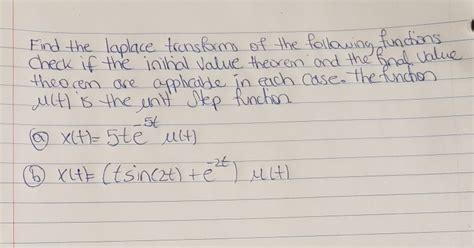 Find the laplace transforms of the following functions
check if the initial value theorem and the final value
theorem are applicable in each case. The function
μ(t) is the unit step function
ⓐ x(t)= 5te^-5t μ(t)
ⓑ x(t)= (tsin(2t) + e^-2t) μ(t)